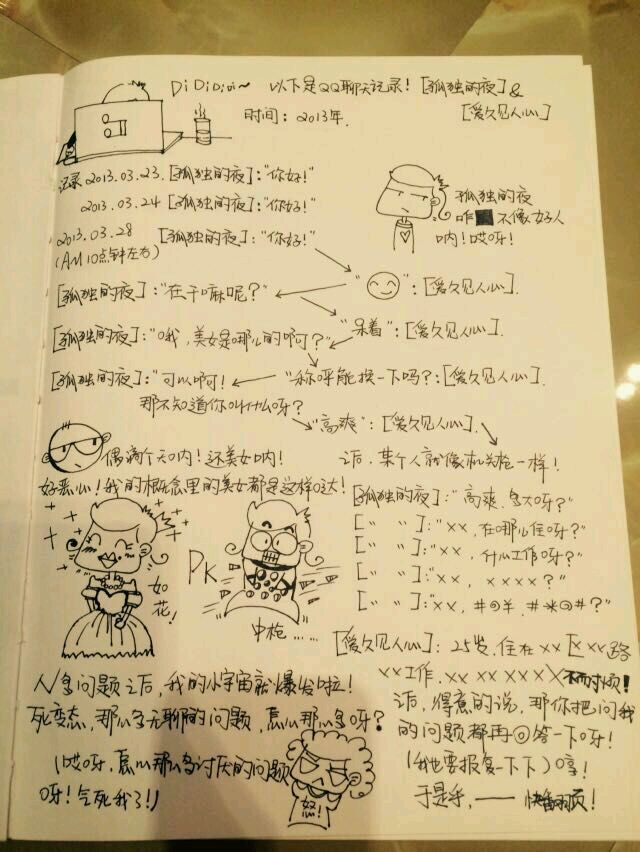 Di Di Di Di~ 以下是QQ聊天记录! [孤独的夜] &
[爱久见人心]
时间: 2013年.
记录 2013.03.23. [孤独的夜]: "你好!"
2013.03.24 [孤独的夜]: "你好!"
2013.03.28 [孤独的夜]: "你好!"
(AM 10点钟左右)
孤独的夜
咋 不像好人
呐! 哎呀!
" ": [爱久见人心].
[孤独的夜]: "在干嘛呢?"
"呆着": [爱久见人心].
[孤独的夜]: "哦, 美女是哪儿的啊?"
"称呼能换一下吗?: [爱久见人心].
[孤独的夜]: "可以啊!
那不知道你叫什么呀?
"高爽": [爱久见人心].
偶滴个天呐! 还美女呐!
好恶心! 我的概念里的美女都是这样哒!
如花!
PK
中枪......
之后, 某个人就像机关枪一样!
[孤独的夜]: "高爽, 多大呀?"
[" "]: "××, 在哪儿住呀?"
[" "]: "××, 什么工作呀?"
[" "]: "××, ××××?"
[" "]: "××, #@¥, #*@#?"
[爱久见人心]: 25岁, 住在××区××路
××工作, ×× ×× ××× 不耐烦!
N多问题之后, 我的小宇宙就爆发啦!
死变态, 那么多无聊的问题, 怎么那么多呀?
(哎呀, 怎么那么多讨厌的问题
呀! 气死我了!)
怒!
之后, 得意的说, 那你把问我
的问题都再回答一下呀!
(我也要报复一下下) 哼!
于是乎, —— 快翻页!